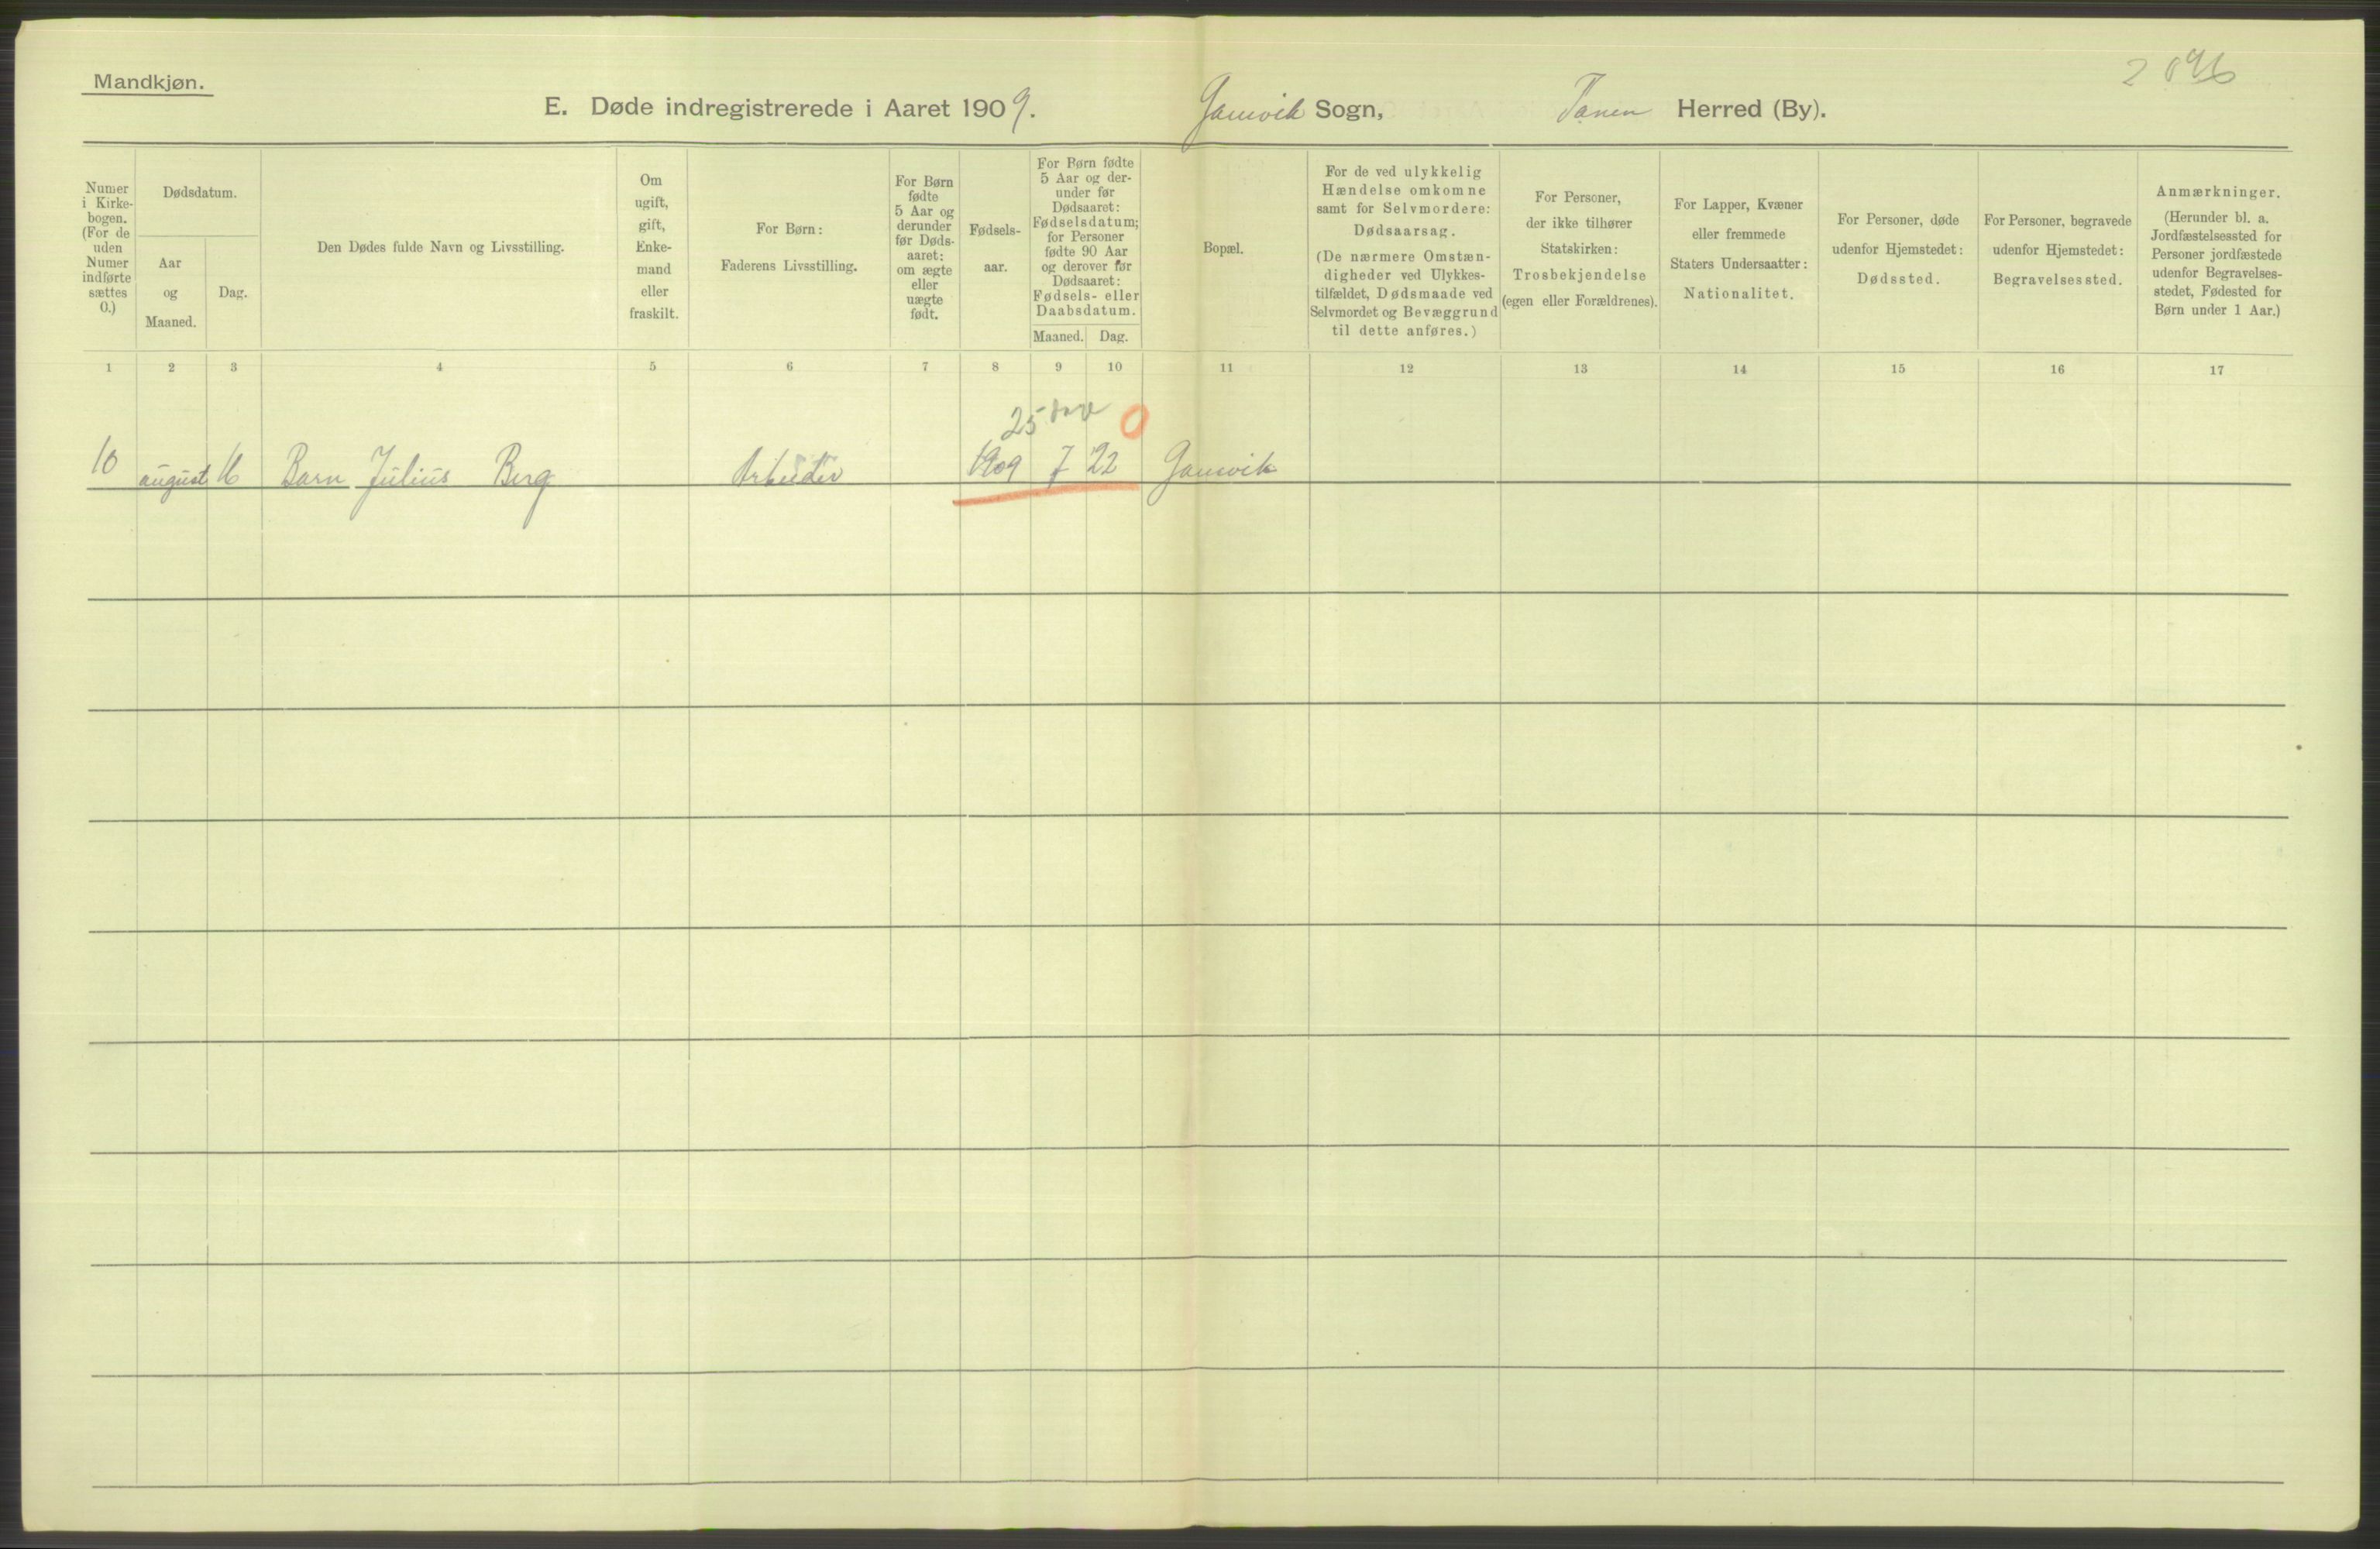 Mandkjøn.
E. Døde indregistrerede i Aaret 1909. Gamvik Sogn, Tanen Herred (By).
Numer i Kirkebogen. (For de uden Numer indførte sættes 0.)
Dødsdatum.
Aar og Maaned.
Dag.
Den Dødes fulde Navn og Livsstilling.
Om ugift, gift, Enkemand eller fraskilt.
For Børn: Faderens Livsstilling.
For Børn fødte 5 Aar og derunder før Dødsaaret: om ægte eller uægte født.
Fødselsaar.
For Børn fødte 5 Aar og derunder før Dødsaaret: Fødselsdatum; for Personer fødte 90 Aar og derover før Dødsaaret: Fødsels- eller Daabsdatum.
Maaned. Dag.
Bopæl.
For de ved ulykkelig Hændelse omkomne samt for Selvmordere: Dødsaarsag. (De nærmere Omstændigheder ved Ulykkestilfældet, Dødsmaade ved Selvmordet og Bevæggrund til dette anføres.)
For Personer, der ikke tilhører Statskirken: Trosbekjendelse (egen eller Forældrenes).
For Lapper, Kvæner eller fremmede Staters Undersaatter: Nationalitet.
For Personer, døde udenfor Hjemstedet: Dødssted.
For Personer, begravede udenfor Hjemstedet: Begravelsessted.
Anmærkninger. (Herunder bl. a. Jordfæstelsessted for Personer jordfæstede udenfor Begravelsesstedet, Fødested for Børn under 1 Aar.)
1 2 3 4 5 6 7 8 9 10 11 12 13 14 15 16 17
25 0
10 august 16 Barn Julius Berg Arbeider 1909 7 22 Gamvik